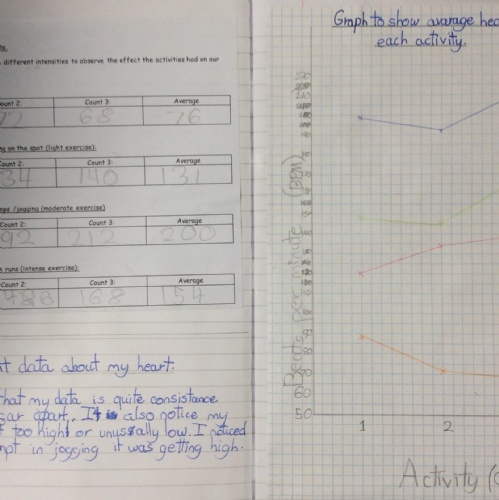 different intensities to observe the effect the activities had on our
Count 2: Count 3: Average
72 68 76
ng on the spot (light exercise):
Count 2: Count 3: Average
34 140 131
mps /jogging (moderate exercise)
Count 2: Count 3: Average
92 212 200
runs (intense exercise):
Count 2: Count 3: Average
168 154
t data about my heart:
that my data is quite consistance
ear apart. It also notice my
too high or unusually low. I noticed
mpt in jogging it was getting high.
Graph to show avarage hea
each activity.
Beats per minute (BPM)
80
70
60
50
1 2
Activity (